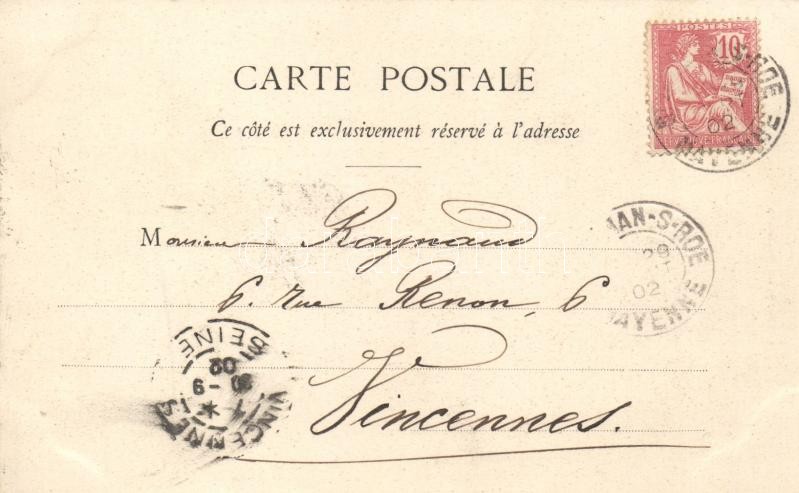 POSTES
10
RÉPUBLIQUE FRANÇAISE
S-ROE
02
MAYENNE
CARTE POSTALE
Ce côté est exclusivement réservé à l'adresse
Monsieur Raynaud
6. rue Renon, 6
Vincennes.
NAN-S-ROE
29
02
MAYENNE
SEINE
02
VINCENNES